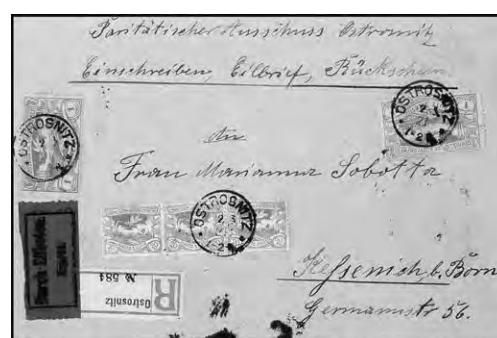 Paritätischer Ausschuss Ostrosnitz
Einschreiben, Eilbrief, Rückschein
OSTROSNITZ
OSTROSNITZ
an
Frau Marianna Sobotta
OSTROSNITZ
Durch Eilboten
Exprès
R
Ostrosnitz
№ 581
Kessenich, b. Bonn
Germanustr 56.